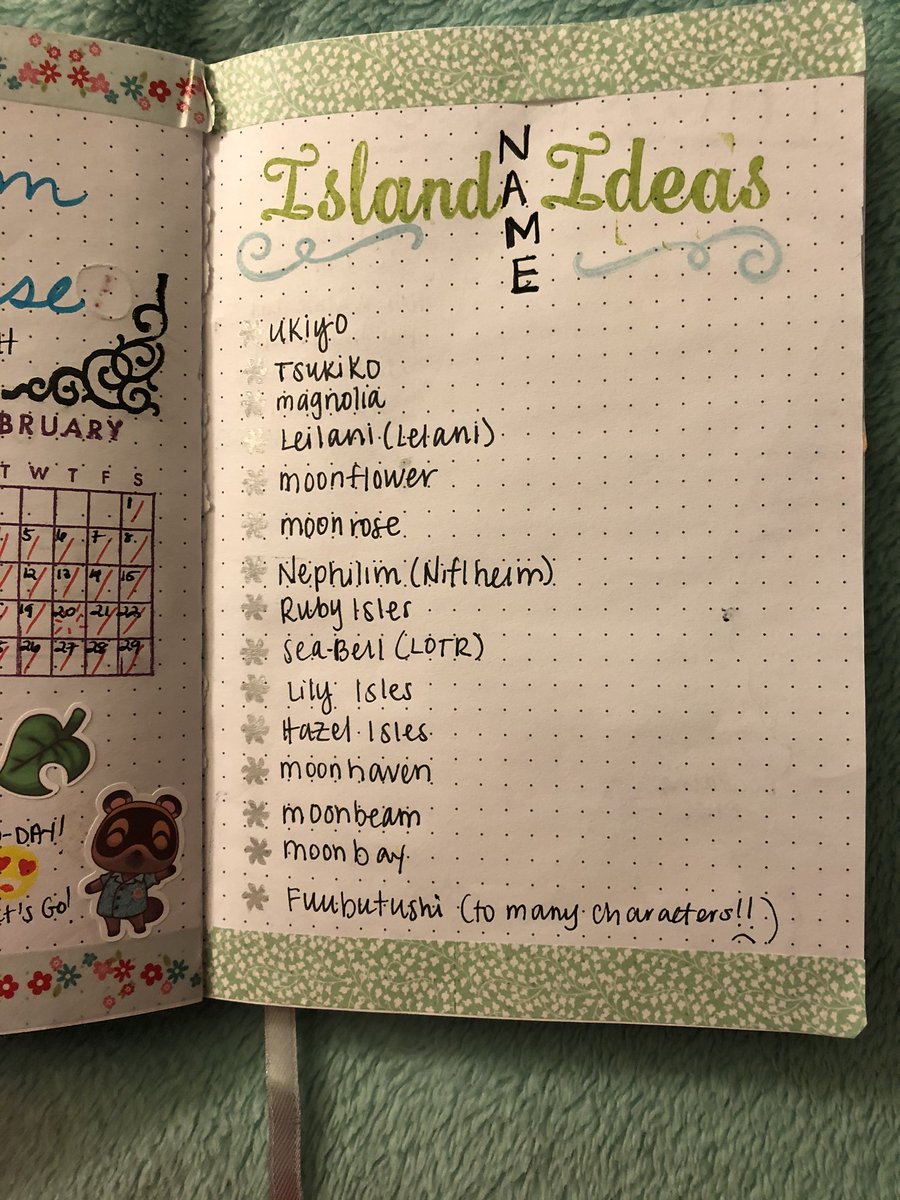 se!
BRUARY
T W T F S
1
5 6 7 8
12 13 14 15
19 20 21 22
26 27 28 29
-DAY!
t's Go!
Island NAME Ideas
Ukiyo
Tsukiko
magnolia
Leilani (Lelani)
moonflower
moonrose
Nephilim (Niflheim)
Ruby Isles
Sea-Bell (LOTR)
Lily Isles
Hazel Isles
moonhaven
moonbeam
moonbay
Fuubutushi (to many characters!!)